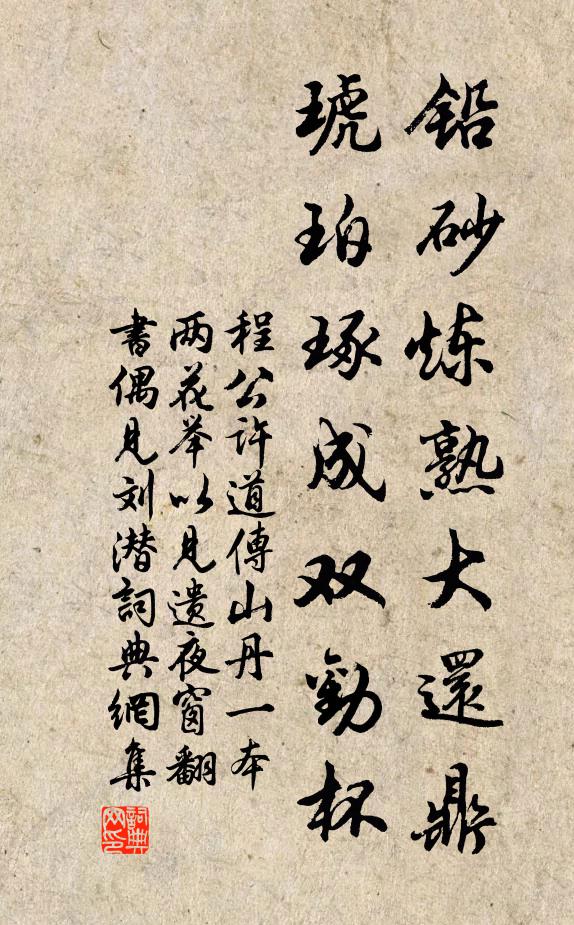 铅砂炼熟大還鼎
琥珀琢成双勸杯
程公许道傳山丹一本
两花举以見遗夜窗翻
書偶見刘潜詞典網集
詞典网印